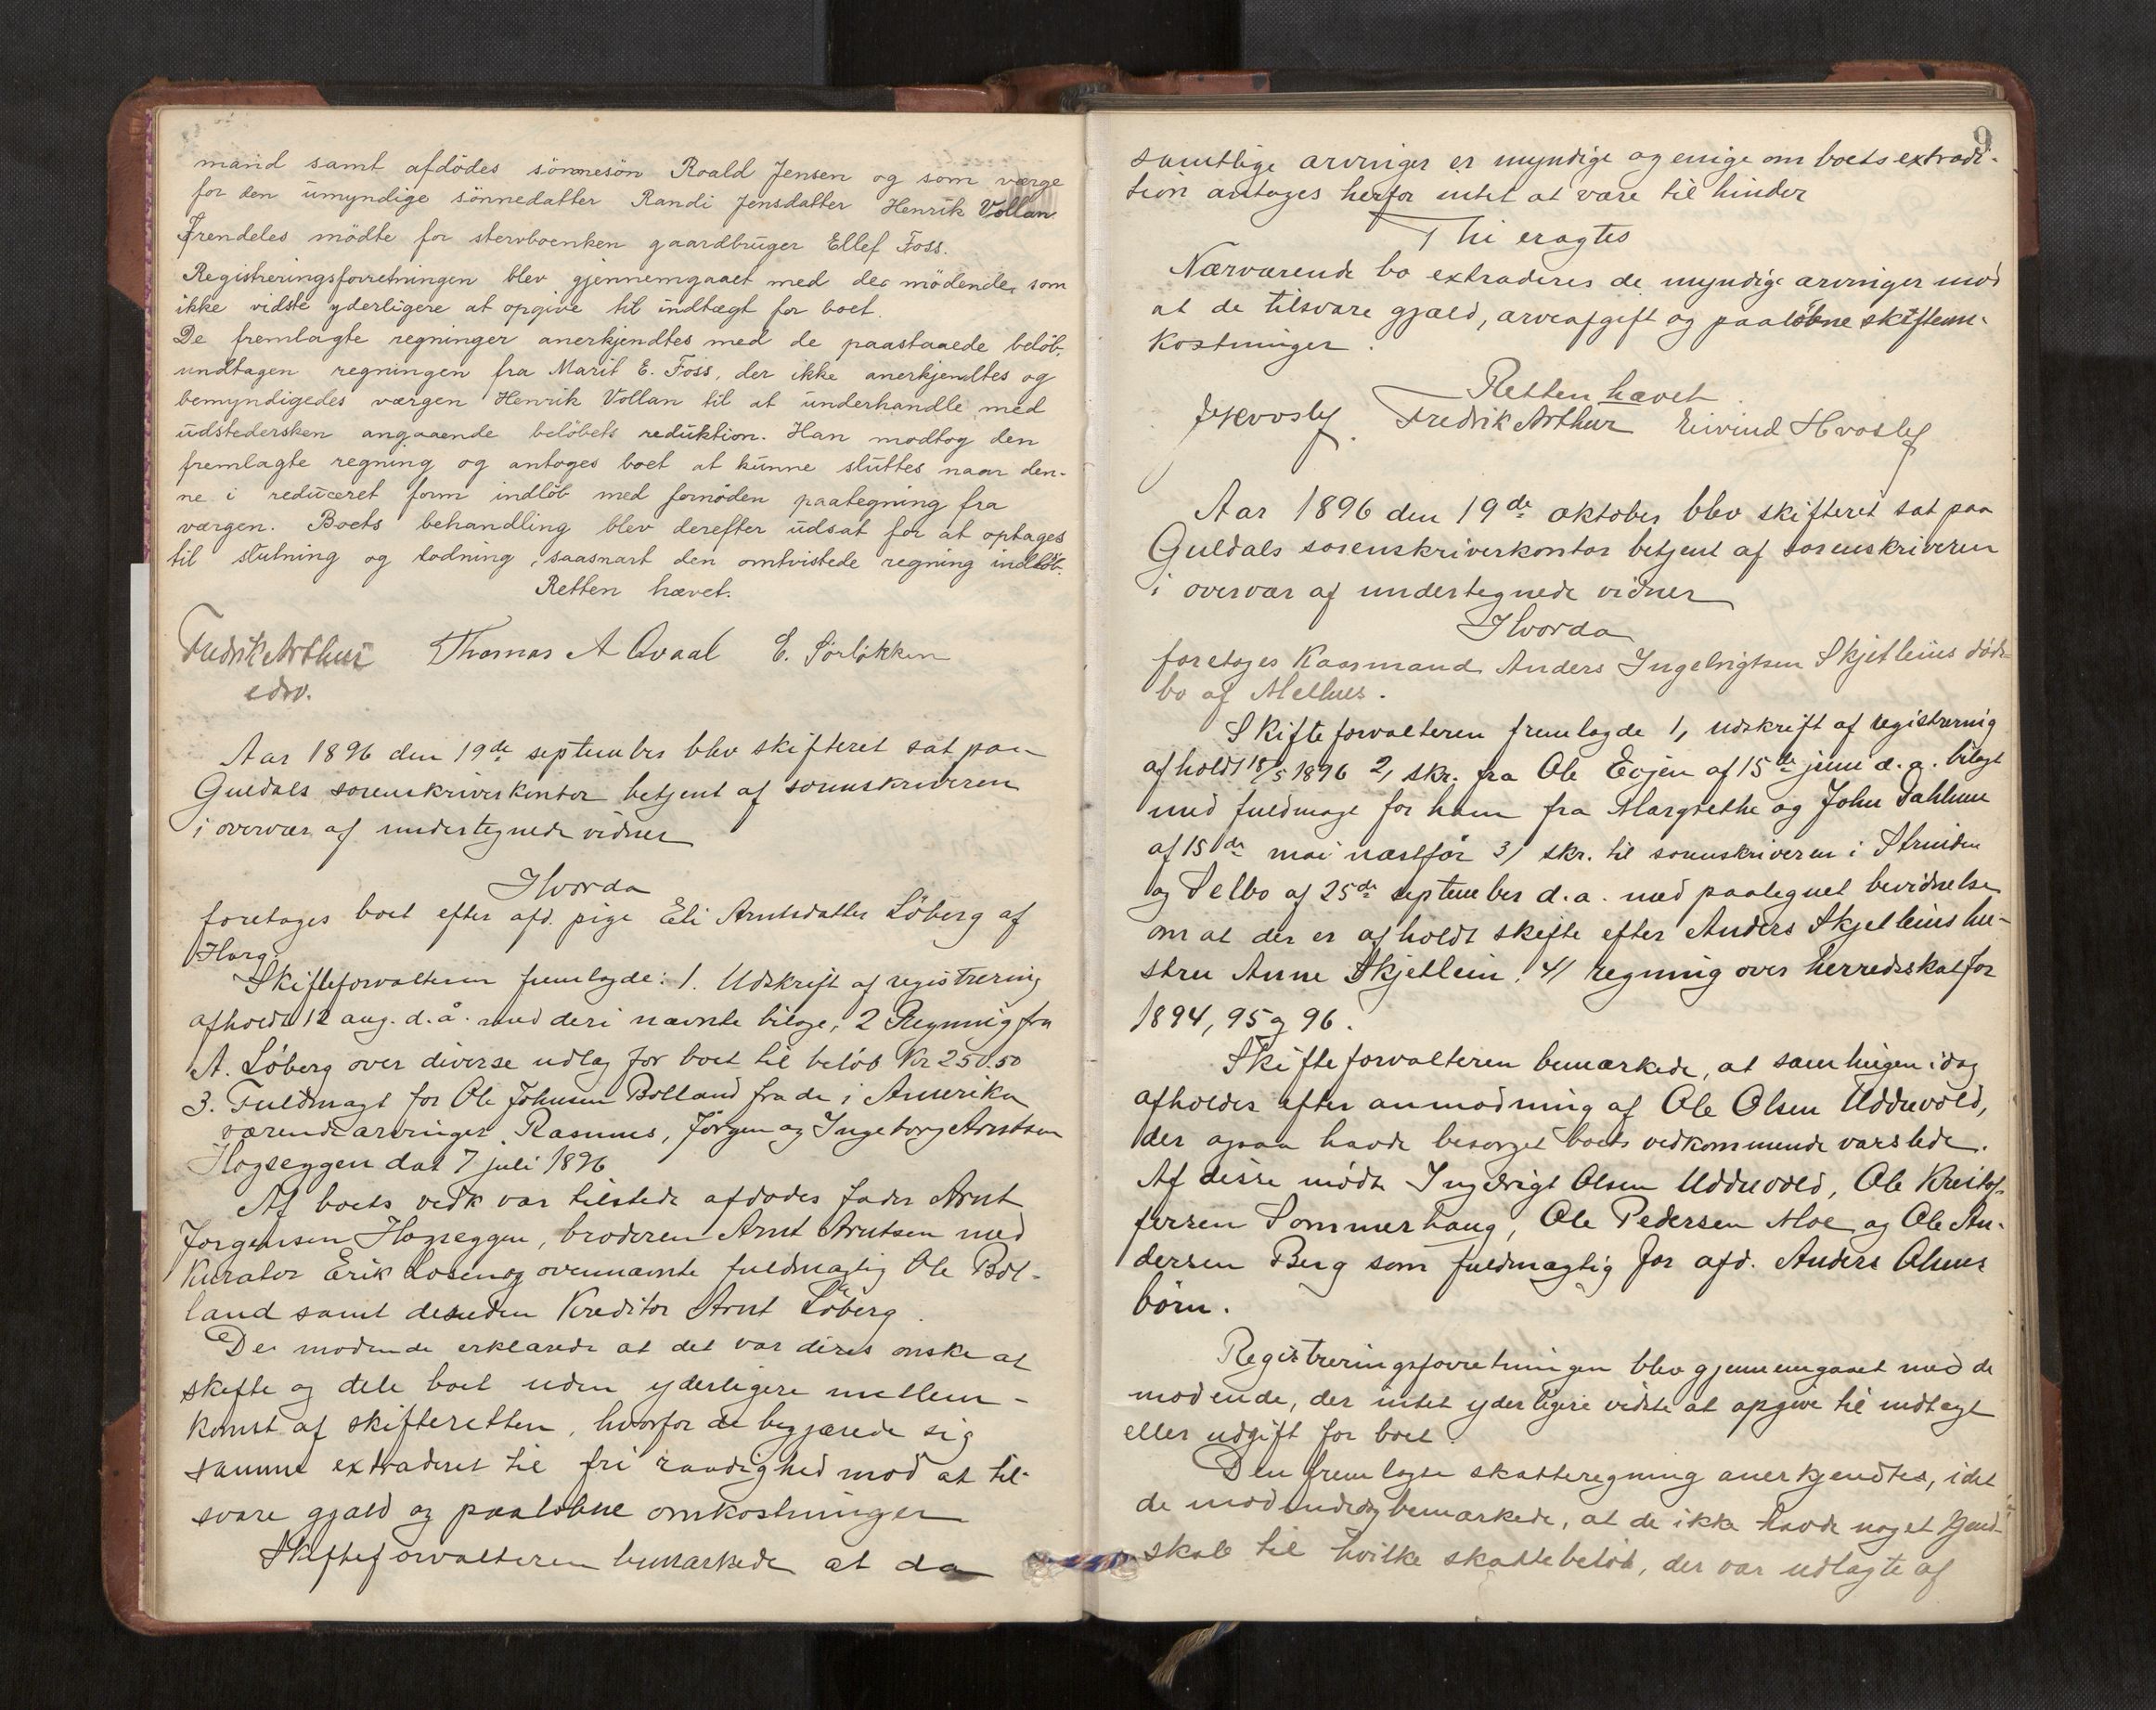 mand samt afdödes sönnesön Roald Jensen og som værge
for den umyndige sönnedatter Randi Jensdatter Henrik Vollan
Frendeles mödte for stervboenken gaardbruger Ellef Foss.
Registreringsforretningen blev gjennemgaaet med de mödende, som
ikke vidste yderligere at opgive til indtægt for boet.
De fremlagte regninger anerkjendtes med de paastaaede belöb,
undtagen regningen fra Marit E. Foss, der ikke anerkjendtes og
bemyndigedes værgen Henrik Vollan til at underhandle med
udstedersken angaaende belöbets reduktion. Han modtog den
fremlagte regning og antoges boet at kunne sluttes naar den-
ne i reduceret form indlöb med fornöden paategning fra
værgen. Boets behandling blev derefter udsat for at optages
til slutning og lodning, saasnart den omtvistede regning indlöb.
Retten hævet.
Fredrik Arthur Thomas A Qvaal E. Sörlökken
edsv.
Aar 1896 den 19de september blev skifteret sat paa
Guldals sorenskriverkontor betjent af sorenskriveren
i overvær af undertegnede vidner
Hvorda
foretoges boet efter afd. pige Eli Arntsdatter Löberg af
Horg.
Skifteforvalteren fremlagde: 1. Udskrift af registrering
afholdt 12 aug. d. å. med deri nævnte bilage, 2 Regning fra
A. Löberg over diverse udlæg for boet til belöb Kr 250.50
3. Fuldmagt for Ole Johnsen Bolland fra de i Amerika
værende arvinger Rasmus, Jörgen og Ingeborg Arntsen
Hogseggen dat 7 juli 1896
Af boets vedk var tilstede afdödes fader Arnt
Jorgensen Hogseggen, broderen Arnt Arntsen med
Kurator Erik Losen og ovennævnte fuldmægtig Ole Bol-
land samt desuden Kreditor Arnt Löberg.
De mødende erklærede at det var deres ønske at
skifte og dele boet uden yderligere mellem-
komst af skifteretten, hvorfor de begjærede sig
samme extraderet til fri raadighed mod at til-
svare gjæld og paaløbne omkostninger
Skifteforvalteren bemærkede at da
9
samtlige arvinger er myndige og enige om boets extradi-
tion antages herfor intet at være til hinder
Thi eragtes
Nærværende bo extraderes de myndige arvinger mod
at de tilsvare gjæld, arveafgift og paaløbne skifteom-
kostninger.
Retten hævet.
Hvoslef. Fredrik Arthur Eivind Hvoslef
Aar 1896 den 19de oktober blev skifteret sat paa
Guldals sorenskriverkontor betjent af sorenskriveren
i overvær af undertegnede vidner
Hvorda
foretoges Kaarmand Anders Ingebrigtsen Skjetleins døds-
bo af Melhus.
Skifteforvalteren fremlagde 1, udskrift af registrering
afholdt 18/5 1896 2, skr. fra Ole Evjen af 15de juni d. a. bilagt
med fuldmagt for ham fra Margrethe og John Dahlum
af 15de mai næstfør 3/ skr. til sorenskriveren i Strinden
og Selbo af 25de september d. a. med paategnet bevidnelse
om at der er afholdt skifte efter Anders Skjetleins hu-
stru Anne Skjetlein. 4/ regning over herredsskat for
1894, 95 og 96.
Skifteforvalteren bemærkede, at samlingen idag
afholdes efter anmodning af Ole Olsen Udduvold,
der ogsaa havde besørget boets vedkommende varslede.
Af disse mødte Ingebrigt Olsen Udduvold, Ole Kristof-
fersen Sommerhaug, Ole Pedersen Moe og Ole An-
dersen Berg som fuldmægtig for afd. Anders Olsens
börn.
Registreringsforretningen blev gjennemgaaet med de
mødende, der intet yderligere vidste at opgive til indtægt
eller udgift for boet.
Den fremlagte skatteregning anerkjendtes, idet
de mødende bemærkede, at de ikke havde noget kjend-
skab til hvilke skattebeløb, der var udlagte af